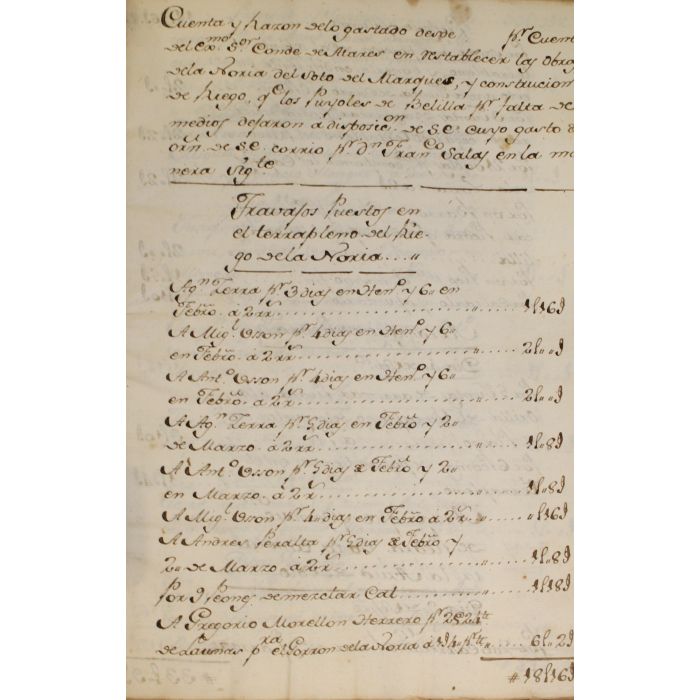 Cuenta y Razon delo gastado desde pr Cuenta
del Exmo Sor Conde de Atares en restablecer las obras
dela Noria del Soto del Marques, y construcion
de Riego, qe los Puyoles de Belilla pr falta de
medios dejaron á disposicon. de S.E. cuyo gasto de
orn. de S.E. corrio pr Dn Franco Salas en la ma
nera Sigte
Travajos Puestos en
el terrapleno del Rie-
go dela Noria....
Agn Terra pr 3 dias en Heno y 6 en
Febro. á 2rr 1l16d
A Migl Osson pr 4 dias en Heno y 6
en Febro. á 2rr 2l..d
A Anto Osson pr 4 dias en Heno y 6
en Febro. á 2rr 2l..d
A Agn Terra pr 5 dias en Febro y 2
de Marzo á 2rr 1l..8d
A Anto Osson pr 5 dias Febro y 2
en Marzo á 2r 1l..8d
A Migl Osson pr 4 dias en Febro á 2rr l16d
A Andres Peralta pr 5 dias Febro y
2 de Marzo á 2rr 1l..8d
Por 9 peones de mezclar Cal 1l18d
A Gregorio Morellon Herrero pr
de pra el Gorron dela Noria á 6l..2d
#18l16d